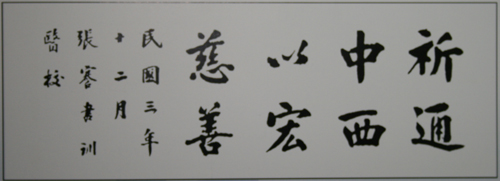 祈通
中西
以宏
慈善
民國三年
十二月
張謇書訓
醫校